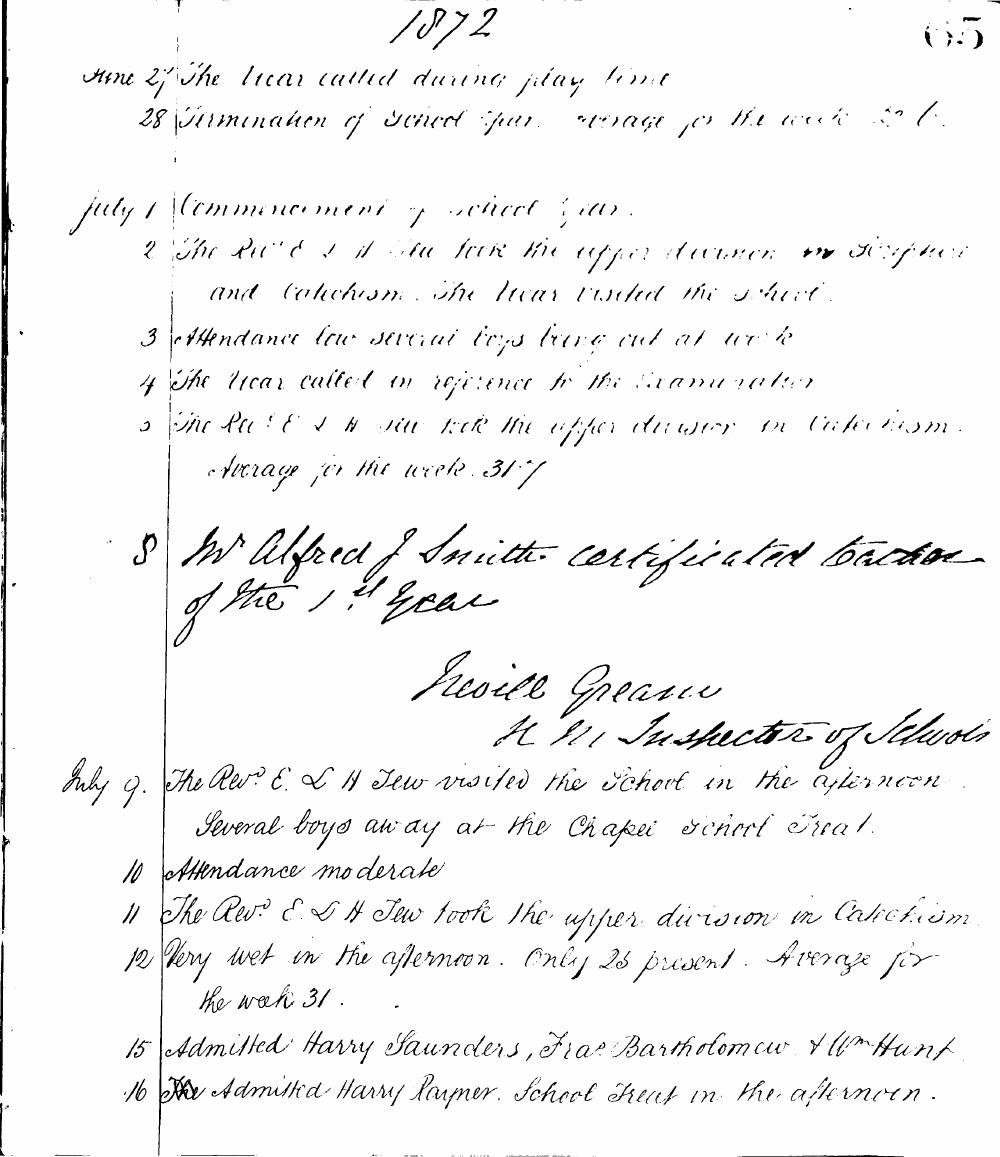 1872
65
June 27 The Vicar called during play time
28 Termination of School Year. Average for the week
July 1 Commencement of School Year.
2 The Revd E L H Tew took the upper division in Scripture
and Catechism. The Vicar visited the School.
3 Attendance low several boys being out at work
4 The Vicar called in reference to the Examination
5 The Revd E L H Tew took the upper division in Catechism.
Average for the week. 31.7
8 Mr Alfred J Smith. Certificated Teacher
of the 1st Year
Nevill Gream
H M Inspector of Schools
July 9. The Revd E. L H Tew visited the School in the afternoon.
Several boys away at the Chapel School Treat.
10 Attendance moderate
11 The Revd E. L H Tew took the upper division in Catechism
12 Very wet in the afternoon. Only 25 present. Average for
the week 31.
15 Admitted Harry Saunders, Fras Bartholomew & Wm Hunt
16 The Admitted Harry Rayner. School Treat in the afternoon.